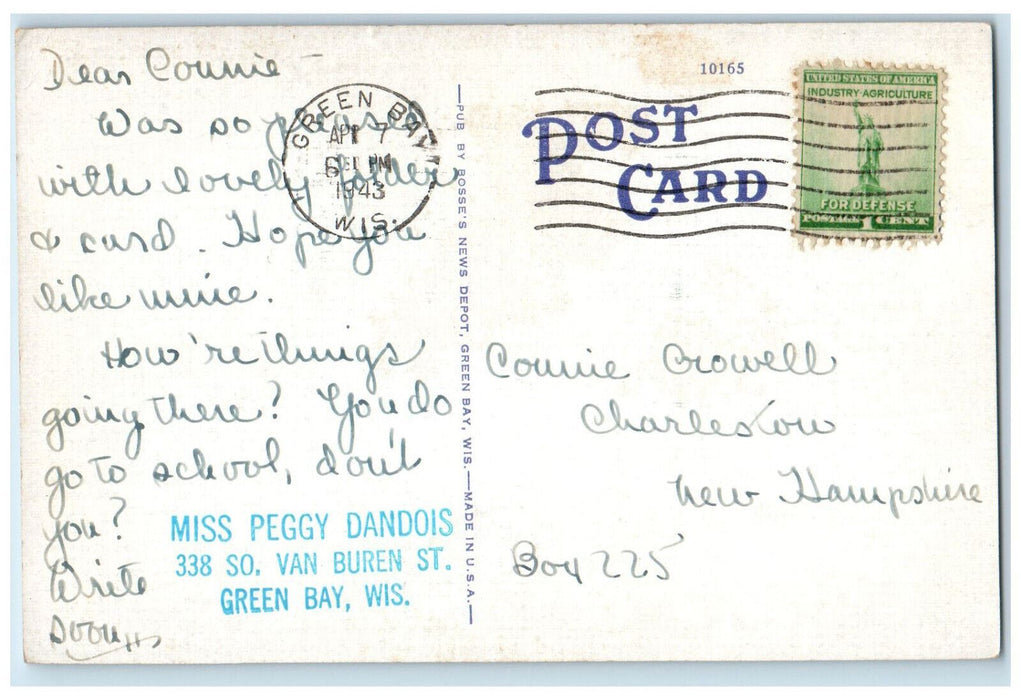 Dear Connie -
Was so pleased
with lovely folder
& card. Hope you
like mine.
How're things
going there? You do
go to school, don't
you?
Write
soon
MISS PEGGY DANDOIS
338 SO. VAN BUREN ST.
GREEN BAY, WIS.
GREEN BAY
APR 7
PM
1943
WIS.
PUB BY BOSSE'S NEWS DEPOT, GREEN BAY, WIS.—MADE IN U.S.A.
10165
POST
CARD
UNITED STATES OF AMERICA
INDUSTRY·AGRICULTURE
FOR DEFENSE
POSTAGE 1 CENT
Connie Crowell
Charlestown
New Hampshire
Box 225